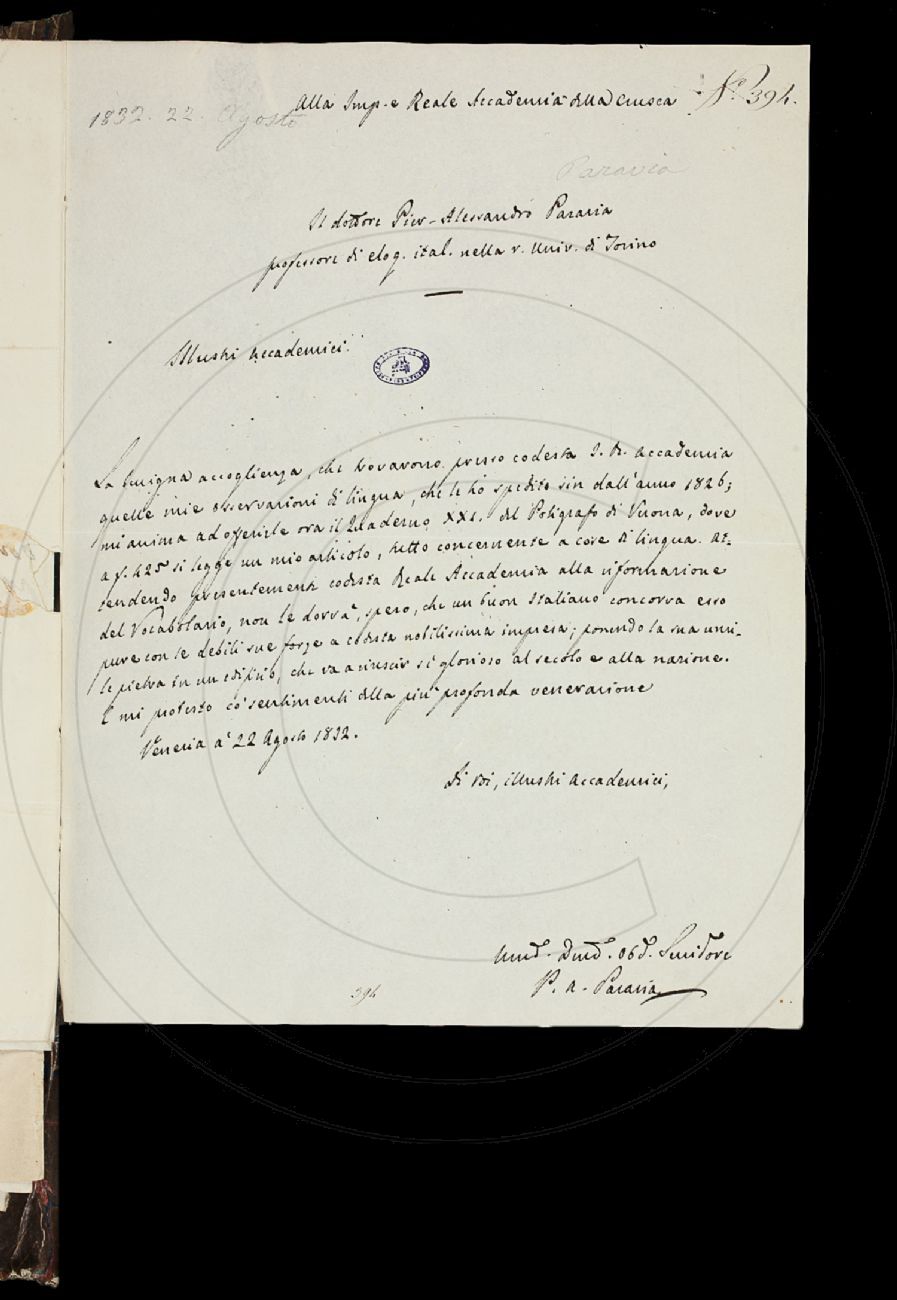 1832. 22. Agosto
Alla Imp. e Reale Accademia della Crusca
N.º 394.
Paravia
Il dottore Pier-Alessandro Paravia
professore di eloq. ital. nella r. Univ. di Torino
Illustri Accademici.
La benigna accoglienza, che trovarono presso codesta I. R. Accademia
quelle mie osservazioni di lingua, che le ho spedito sin dall'anno 1826;
mi anima ad offerirle ora il Quaderno XXI. del Poligrafo di Verona, dove
a f. 425 si legge un mio articolo, tutto concernente a cose di lingua. At-
tendendo presentemente codesta Reale Accademia alla riformazione
del Vocabolario, non le dorrà, spero, che un buon Italiano concorra esso
pure con le debili sue forze a codesta nobilissima impresa; ponendo la sua umi-
le pietra in un edifizio, che va a riuscir sì glorioso al secolo e alla nazione.
E mi protesto co' sentimenti della più profonda venerazione
Venezia a' 22 Agosto 1832.
Di Voi, illustri Accademici,
Umil. Devd. Obd. Servidore
P. A. Paravia
394